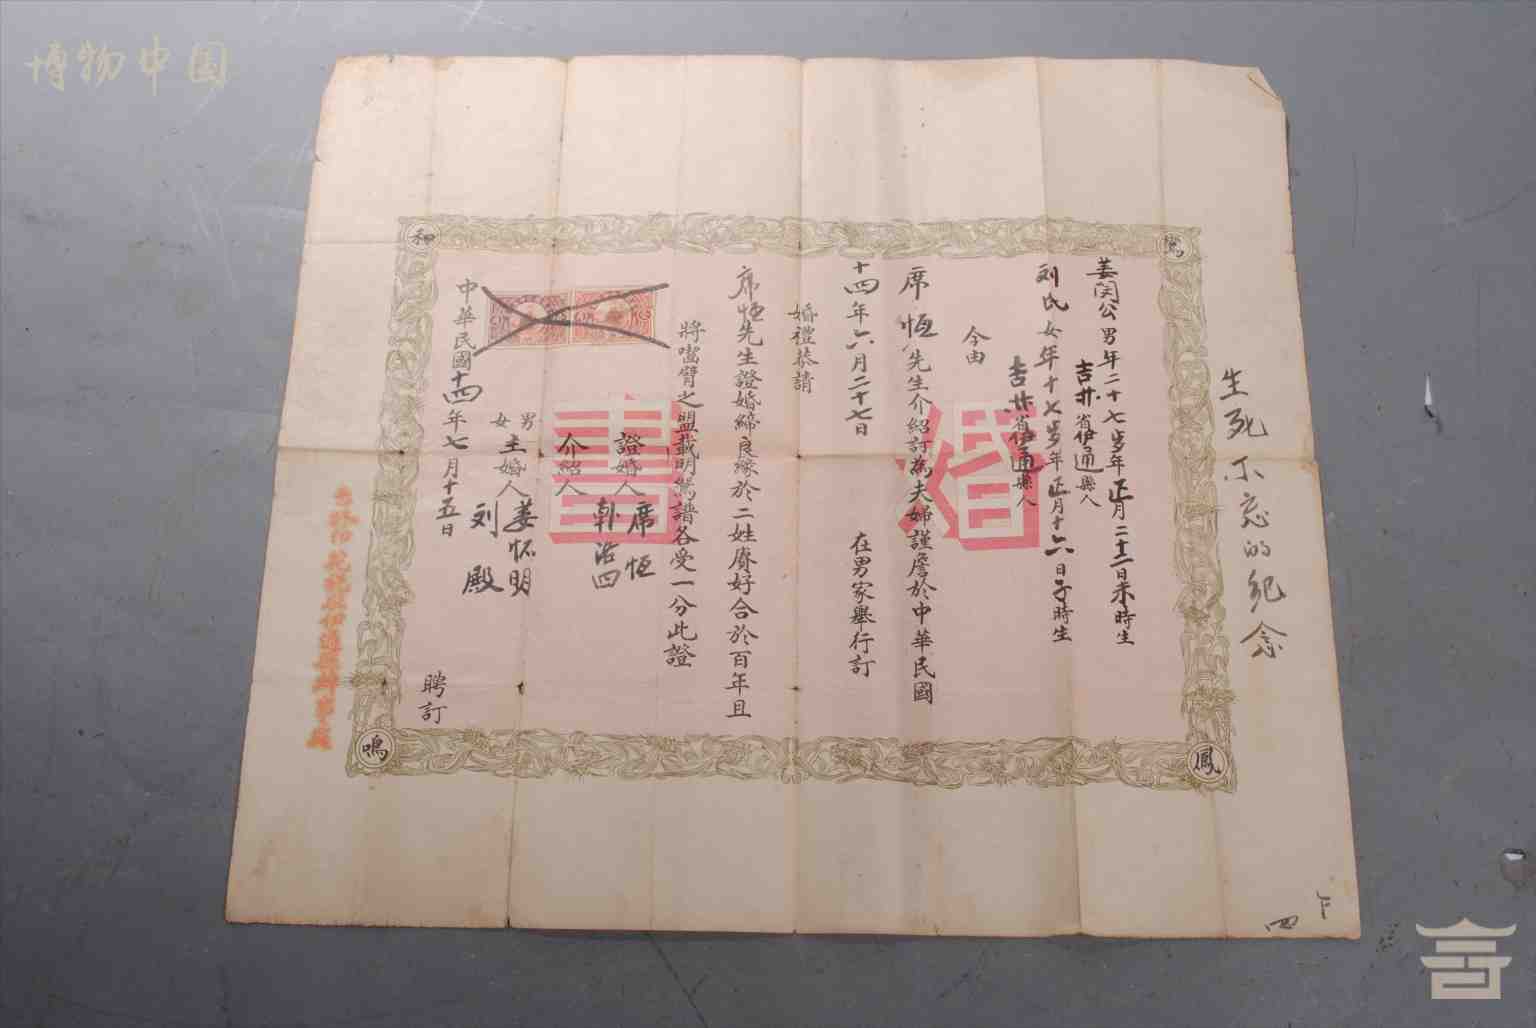 博物中国
鸞
鳳
和
鳴
婚
書
生死不忘的紀念
姜闵公 男年二十七岁年正月二十二日未時生
吉林省伊通縣人
刘氏 女年十七岁年正月十六日子時生
吉林省伊通縣人
今由
席恆先生介紹訂為夫婦謹詹於中華民國
十四年六月二十七日 在男家舉行訂
婚禮恭請
席恆先生證婚締良緣於二姓賡好合於百年且
將囓臂之盟載明鴛譜各受一分此證
證婚人 席恆
介紹人 治四
男
女
主婚人 姜怀明
刘殿
中華民國十四年七月十五日
聘訂
伊通縣
四